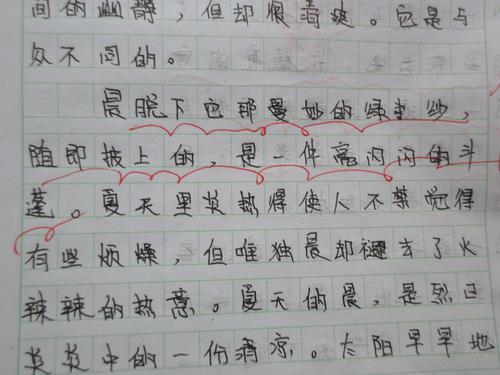 间的幽静，但却很清爽。它是与
众不同的。
晨脱下它那曼妙的绿衣纱，
随即披上的，是一件亮闪闪的斗
篷。夏天里炎热得使人不禁觉得
有些烦燥，但唯独晨却褪去了火
辣辣的热意。夏天的晨，是烈日
炎炎中的一份清凉。太阳早早地